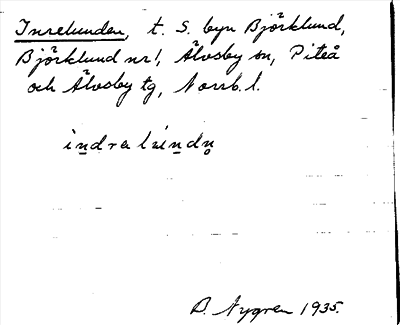 Inrelunden, t. S. byn Björklund,
Björklund nr 1, Älvsby sn, Piteå
och Älvsby tg, Norrb. l.
B. Nygren 1935.